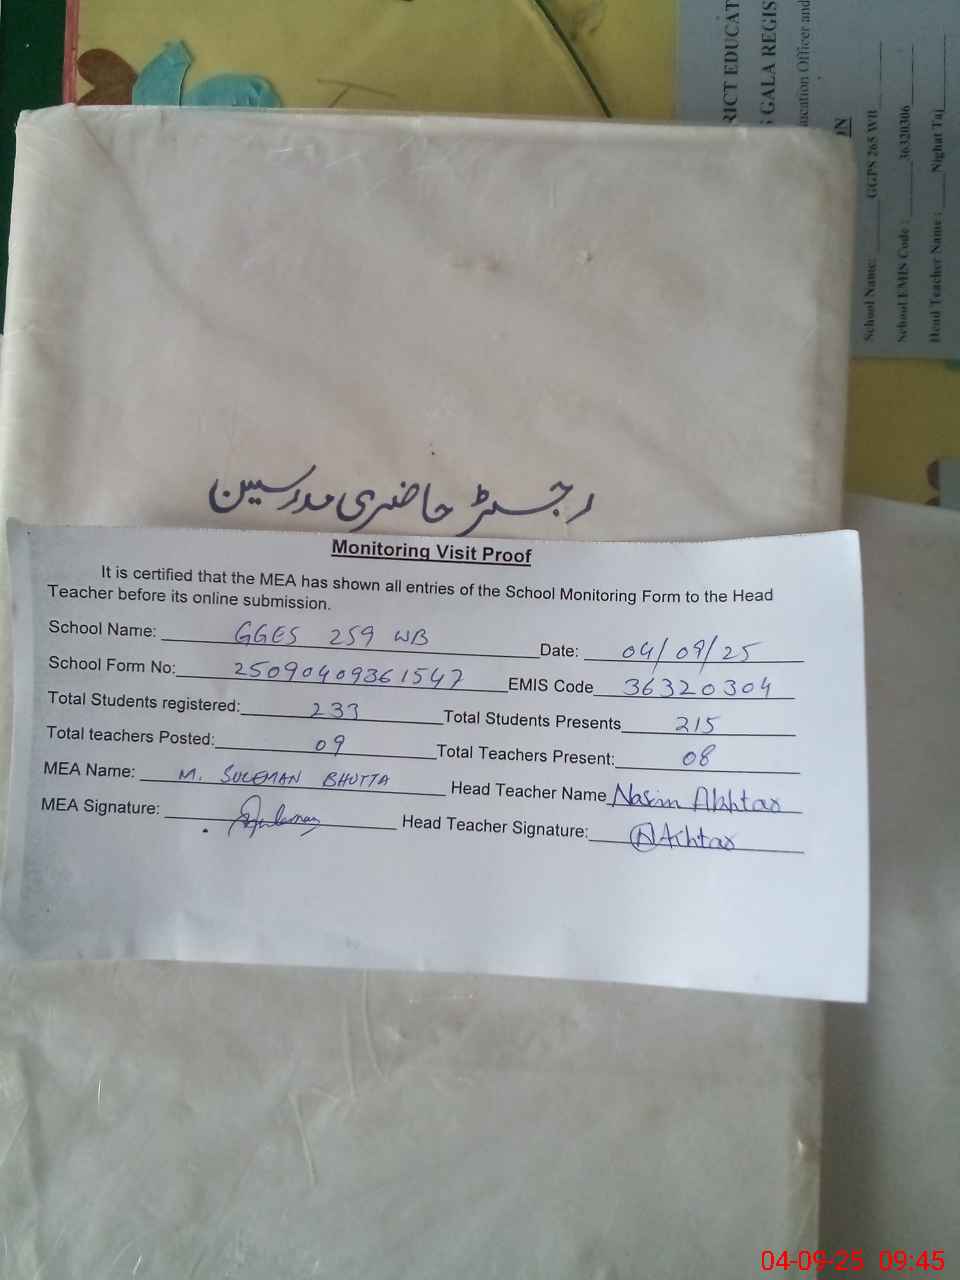 RICT EDUCAT
GALA REGIS
ucation Officer and
ON
School Name: GGPS 265 WB
School EMIS Code : 36320306
Head Teacher Name : Nighat Taj
رجسٹر حاضری مدرسین
Monitoring Visit Proof
It is certified that the MEA has shown all entries of the School Monitoring Form to the Head
Teacher before its online submission.
School Name: GGES 259 WB Date: 04/09/25
School Form No: 25090409361547 EMIS Code 36320304
Total Students registered: 233 Total Students Presents 215
Total teachers Posted: 09 Total Teachers Present: 08
MEA Name: M. SULEMAN BHUTTA Head Teacher Name Nasim Akhtar
MEA Signature: Head Teacher Signature: NAkhtar
04-09-25 09:45